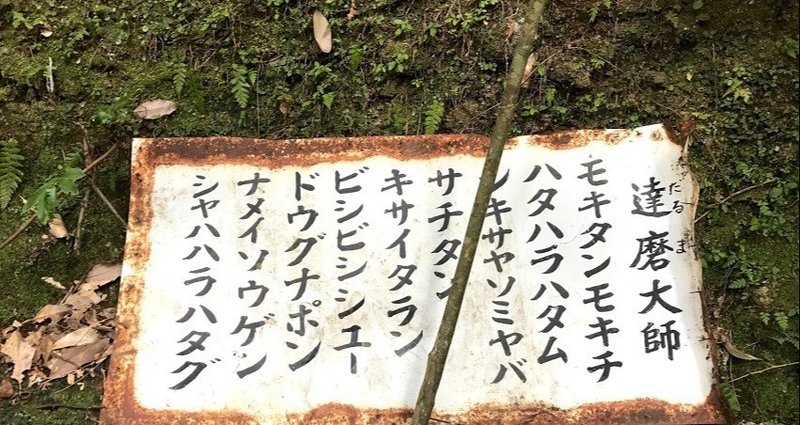 だるま
達磨大師
モキタンモキチ
ハタハラハタム
キサヤソミヤバ
サチタン
キサイタラン
ビシビシシユー
ドウグナポン
ナメイソウゲン
シャハハラハタグ